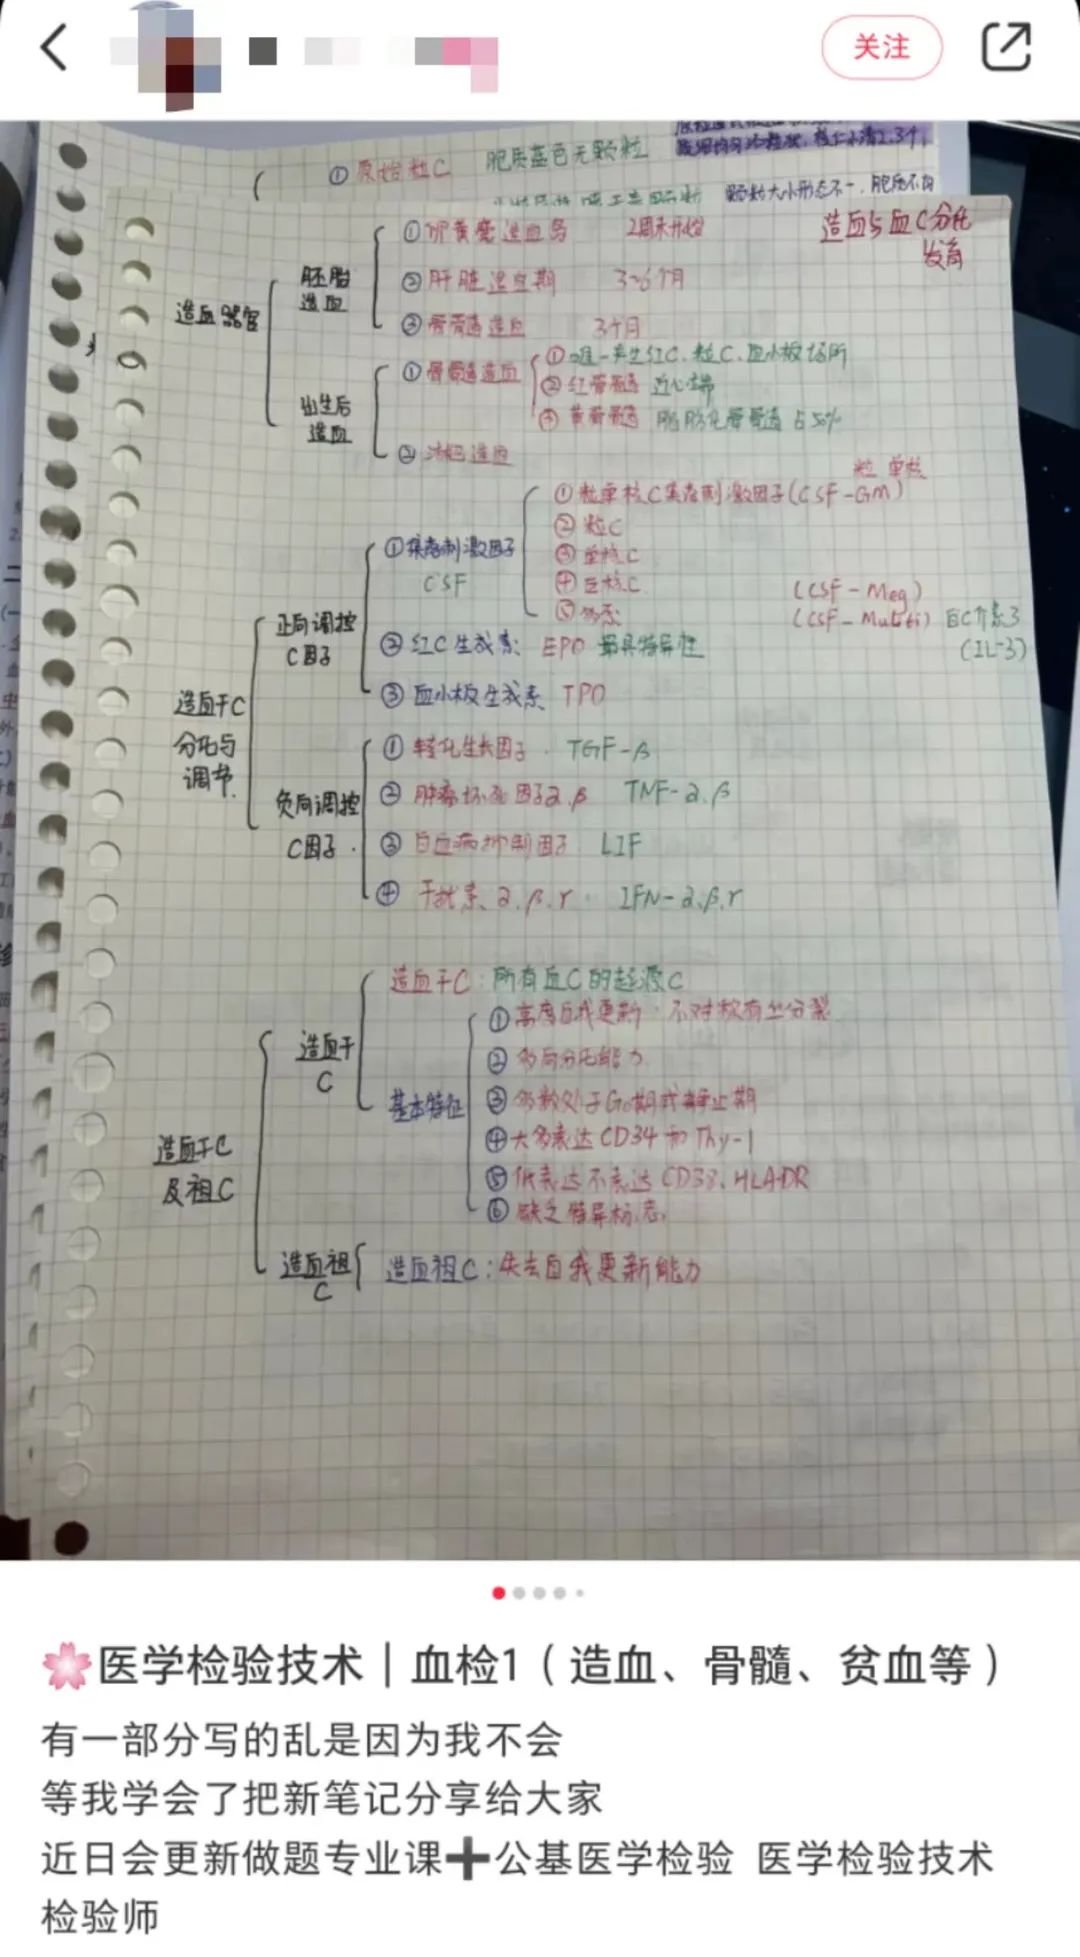 关注
① 原始粒C 胞质蓝色无颗粒
颗粒大小形态不一,胞质不均
造血与血C分化
发育
造血器官
胚胎
造血
① 卵黄囊造血岛 2周末开始
② 肝脏造血期 3~6个月
③ 骨髓造血 3个月
出生后
造血
① 骨髓造血
① 唯一产生红C、粒C、血小板场所
② 红骨髓 近心端
③ 黄骨髓 脂肪化骨髓 占50%
② 淋巴造血
造血干C
分化与
调节.
正向调控
C因子
① 集落刺激因子
CSF
粒 单核
① 粒单核C集落刺激因子(CSF-GM)
② 粒C
③ 单核C
④ 巨核C (CSF-Meg)
⑤ 多系 (CSF-Multi) 白C介素3
(IL-3)
② 红C生成素: EPO 最具特异性
③ 血小板生成素 TPO
负向调控
C因子.
① 转化生长因子. TGF-β
② 肿瘤坏死因子α.β TNF-α、β
③ 白血病抑制因子. LIF
④ 干扰素、α.β.γ. IFN-α.β.γ
造血干C
及祖C
造血干
C
造血干C:所有血C的起源C
基本特征
① 高度自我更新·不对称有丝分裂
② 多向分化能力.
③ 多数处于G₀期或静止期
④ 大多表达CD34和Thy-1
⑤ 低表达不表达CD38、HLADR
⑥ 缺乏特异标志.
造血祖
C
造血祖C:失去自我更新能力
🌸医学检验技术｜血检1（造血、骨髓、贫血等）
有一部分写的乱是因为我不会
等我学会了把新笔记分享给大家
近日会更新做题专业课➕公基医学检验 医学检验技术
检验师